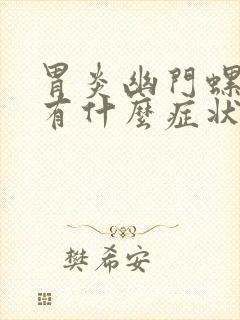 胃炎幽門螺
有什麼症狀
樊希安